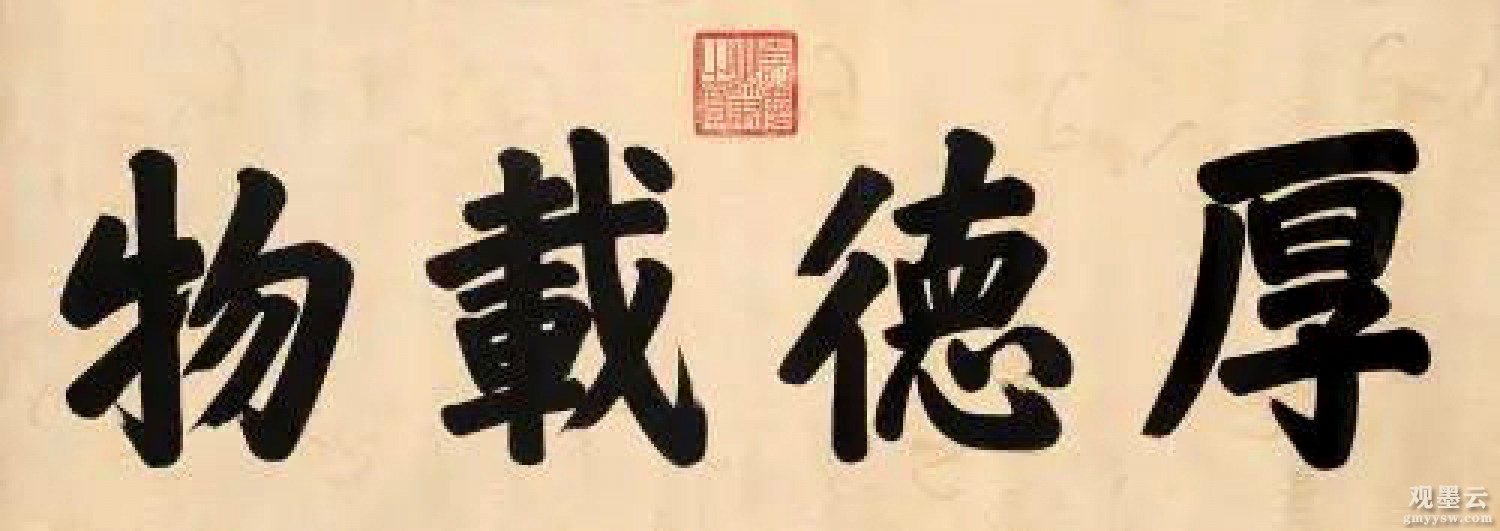 厚德載物
观墨云
gmyysw.com